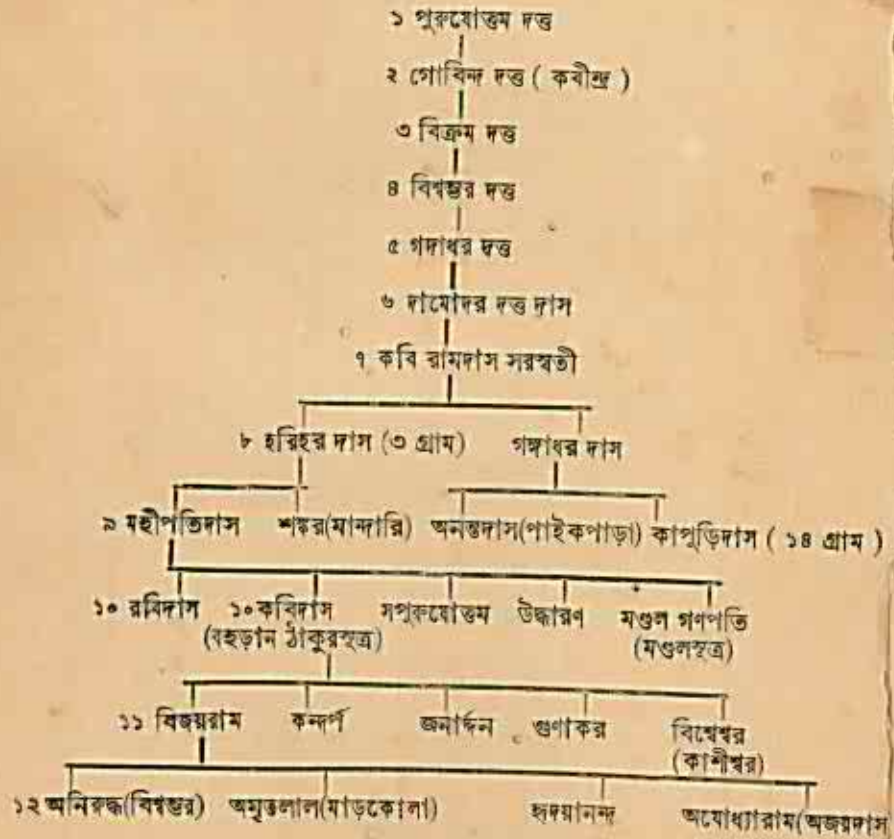 ১ পুরুষোত্তম দত্ত
২ গোবিন্দ দত্ত ( কবীন্দ্র )
৩ বিক্রম দত্ত
৪ বিশ্বম্ভর দত্ত
৫ গদাধর দত্ত
৬ দামোদর দত্ত দাস
৭ কবি রামদাস সরস্বতী
৮ হরিহর দাস (৩ গ্রাম) গঙ্গাধর দাস
৯ মহীপতিদাস শঙ্কর(মান্দারি) অনন্তদাস(পাইকপাড়া) কাপুড়িদাস ( ১৪ গ্রাম )
১০ রবিদাস ১০কবিদাস সপুরুষোত্তম উদ্ধারণ মণ্ডল গণপতি
(বহড়ান ঠাকুরসূত্র) (মণ্ডলসূত্র)
১১ বিজয়রাম কন্দর্প জনার্দ্দন গুণাকর বিশ্বেশ্বর
(কাশীশ্বর)
১২ অনিরুদ্ধ(বিশ্বম্ভর) অমৃতলাল(মাড়কোলা) হৃদয়ানন্দ অযোধ্যারাম(অজয়দাস